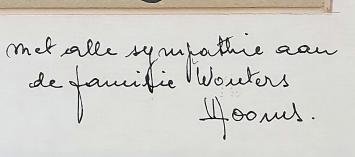 met alle sympathie aan
de familie Wouters